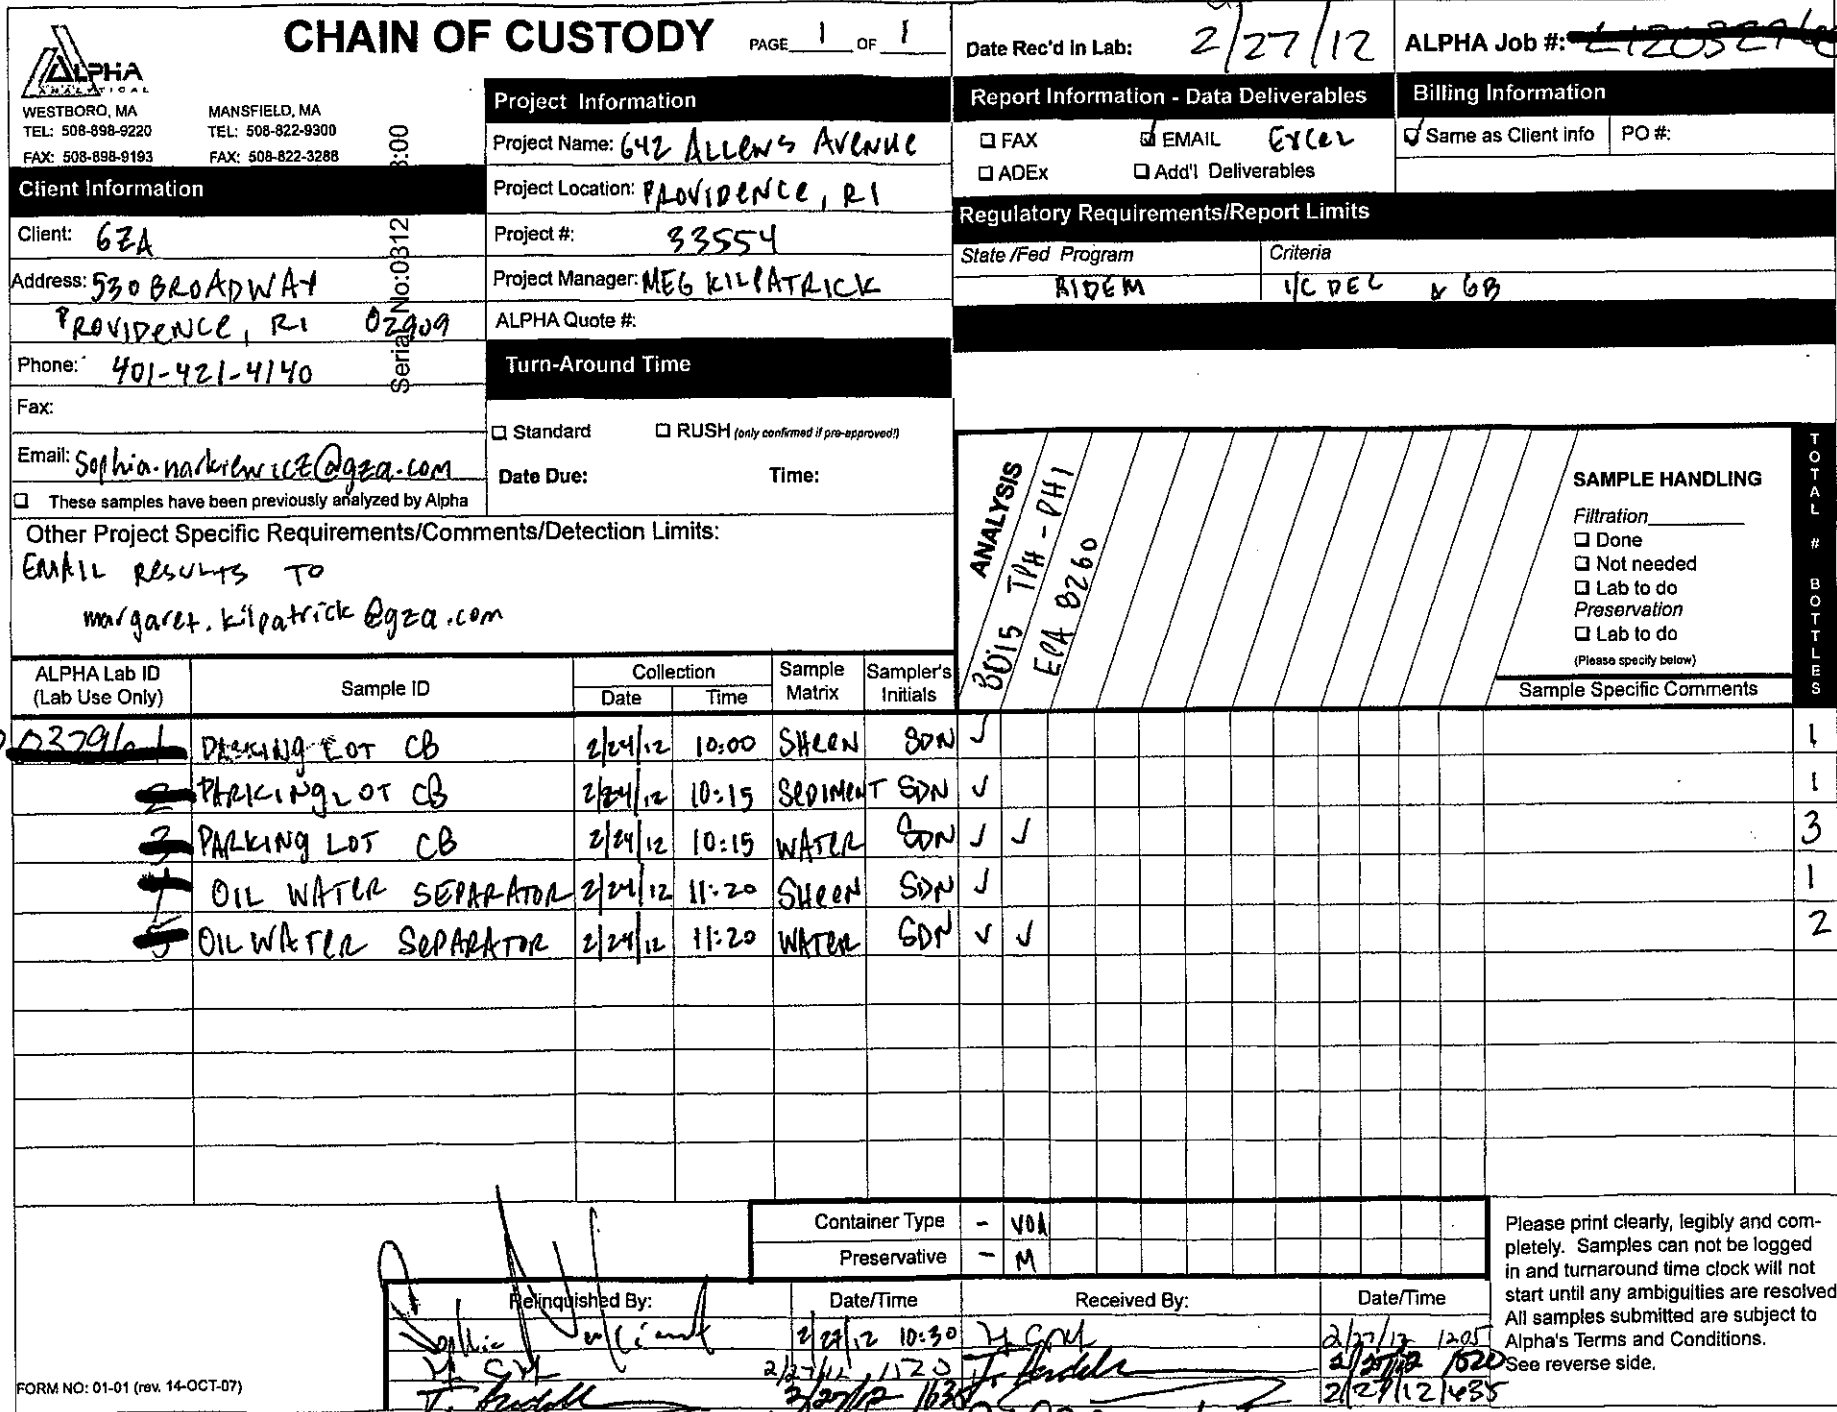 CHAIN OF CUSTODY PAGE 1 OF 1
Date Rec'd in Lab: 2/27/12
ALPHA Job #:
ALPHA
ANALYTICAL
WESTBORO, MA
TEL: 508-898-9220
FAX: 508-898-9193
MANSFIELD, MA
TEL: 508-822-9300
FAX: 508-822-3288
Serial No:0312 3:00
Client Information
Client: GZA
Address: 530 BROADWAY
PROVIDENCE, RI 02909
Phone: 401-421-4140
Fax:
Email: Sophia.narkiewicz@gza.com
These samples have been previously analyzed by Alpha
Project Information
Project Name: 642 ALLENS AVENUE
Project Location: PROVIDENCE, RI
Project #: 33554
Project Manager: MEG KILPATRICK
ALPHA Quote #:
Turn-Around Time
Standard RUSH (only confirmed if pre-approved!)
Date Due: Time:
Report Information - Data Deliverables
FAX EMAIL Excel
ADEx Add'l Deliverables
Billing Information
Same as Client info PO #:
Regulatory Requirements/Report Limits
State /Fed Program Criteria
RIDEM I/C DEC & GB
Other Project Specific Requirements/Comments/Detection Limits:
EMAIL RESULTS TO
margaret.kilpatrick@gza.com
ANALYSIS
8015 TPH - DHI
EPA 8260
SAMPLE HANDLING
Filtration
Done
Not needed
Lab to do
Preservation
Lab to do
(Please specify below)
TOTAL # BOTTLES
ALPHA Lab ID
(Lab Use Only)
Sample ID
Collection
Date Time
Sample
Matrix
Sampler's
Initials
Sample Specific Comments
PARKING LOT CB 2/24/12 10:00 SHEEN SDN ✓ 1
2 PARKING LOT CB 2/24/12 10:15 SEDIMENT SDN ✓ 1
3 PARKING LOT CB 2/24/12 10:15 WATER SDN ✓ ✓ 3
OIL WATER SEPARATOR 2/24/12 11:20 SHEEN SDN ✓ 1
5 OIL WATER SEPARATOR 2/24/12 11:20 WATER SDN ✓ ✓ 2
Container Type - VOA
Preservative - M
Relinquished By: Date/Time Received By: Date/Time
2/27/12 10:30 2/27/12 1205
2/27/12 1520 2/27/12 1520
2/27/12 1635 2/27/12 1635
Please print clearly, legibly and com-
pletely. Samples can not be logged
in and turnaround time clock will not
start until any ambiguities are resolved
All samples submitted are subject to
Alpha's Terms and Conditions.
See reverse side.
FORM NO: 01-01 (rev. 14-OCT-07)